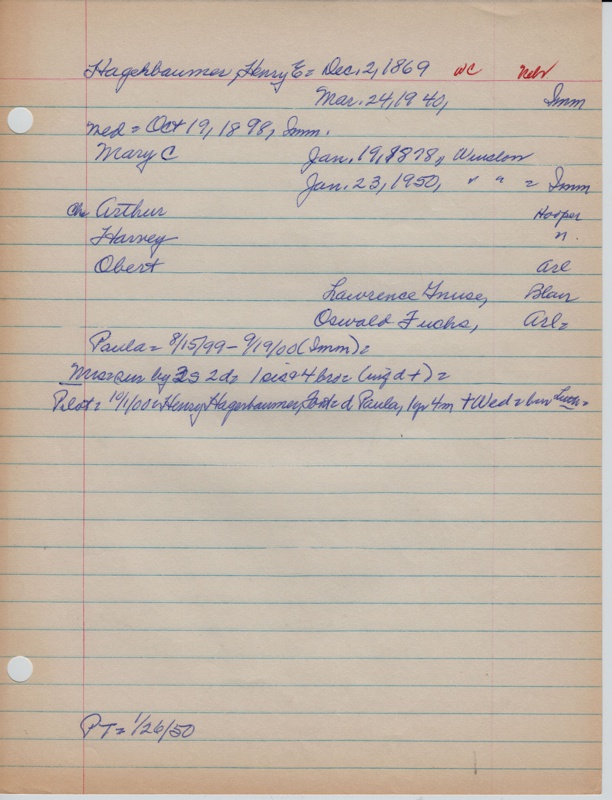 Hagerbaumer, Henry E = Dec. 2, 1869 WC Nebr
Mar. 24, 1940, Imm
Med = Oct 19, 1898, Imm.
Mary C Jan. 19, 1878, Winslow
Jan. 23, 1950, " " = Imm
Ch. Arthur Hooper
Harvey n.
Obert Arl
Lawrence Gnuse, Blair
Oswald Fuchs, Arl =
Paula = 8/15/99 - 9/19/00 (Imm) =
Mrs = sur by 3s 2d = 1 sis = 4 bro = (inf d +) =
Pilot = 10/1/00 = Henry Hagerbaumer, = d Paula, 1 yr 4m + Wed = bur Luth =
PT = 1/26/50